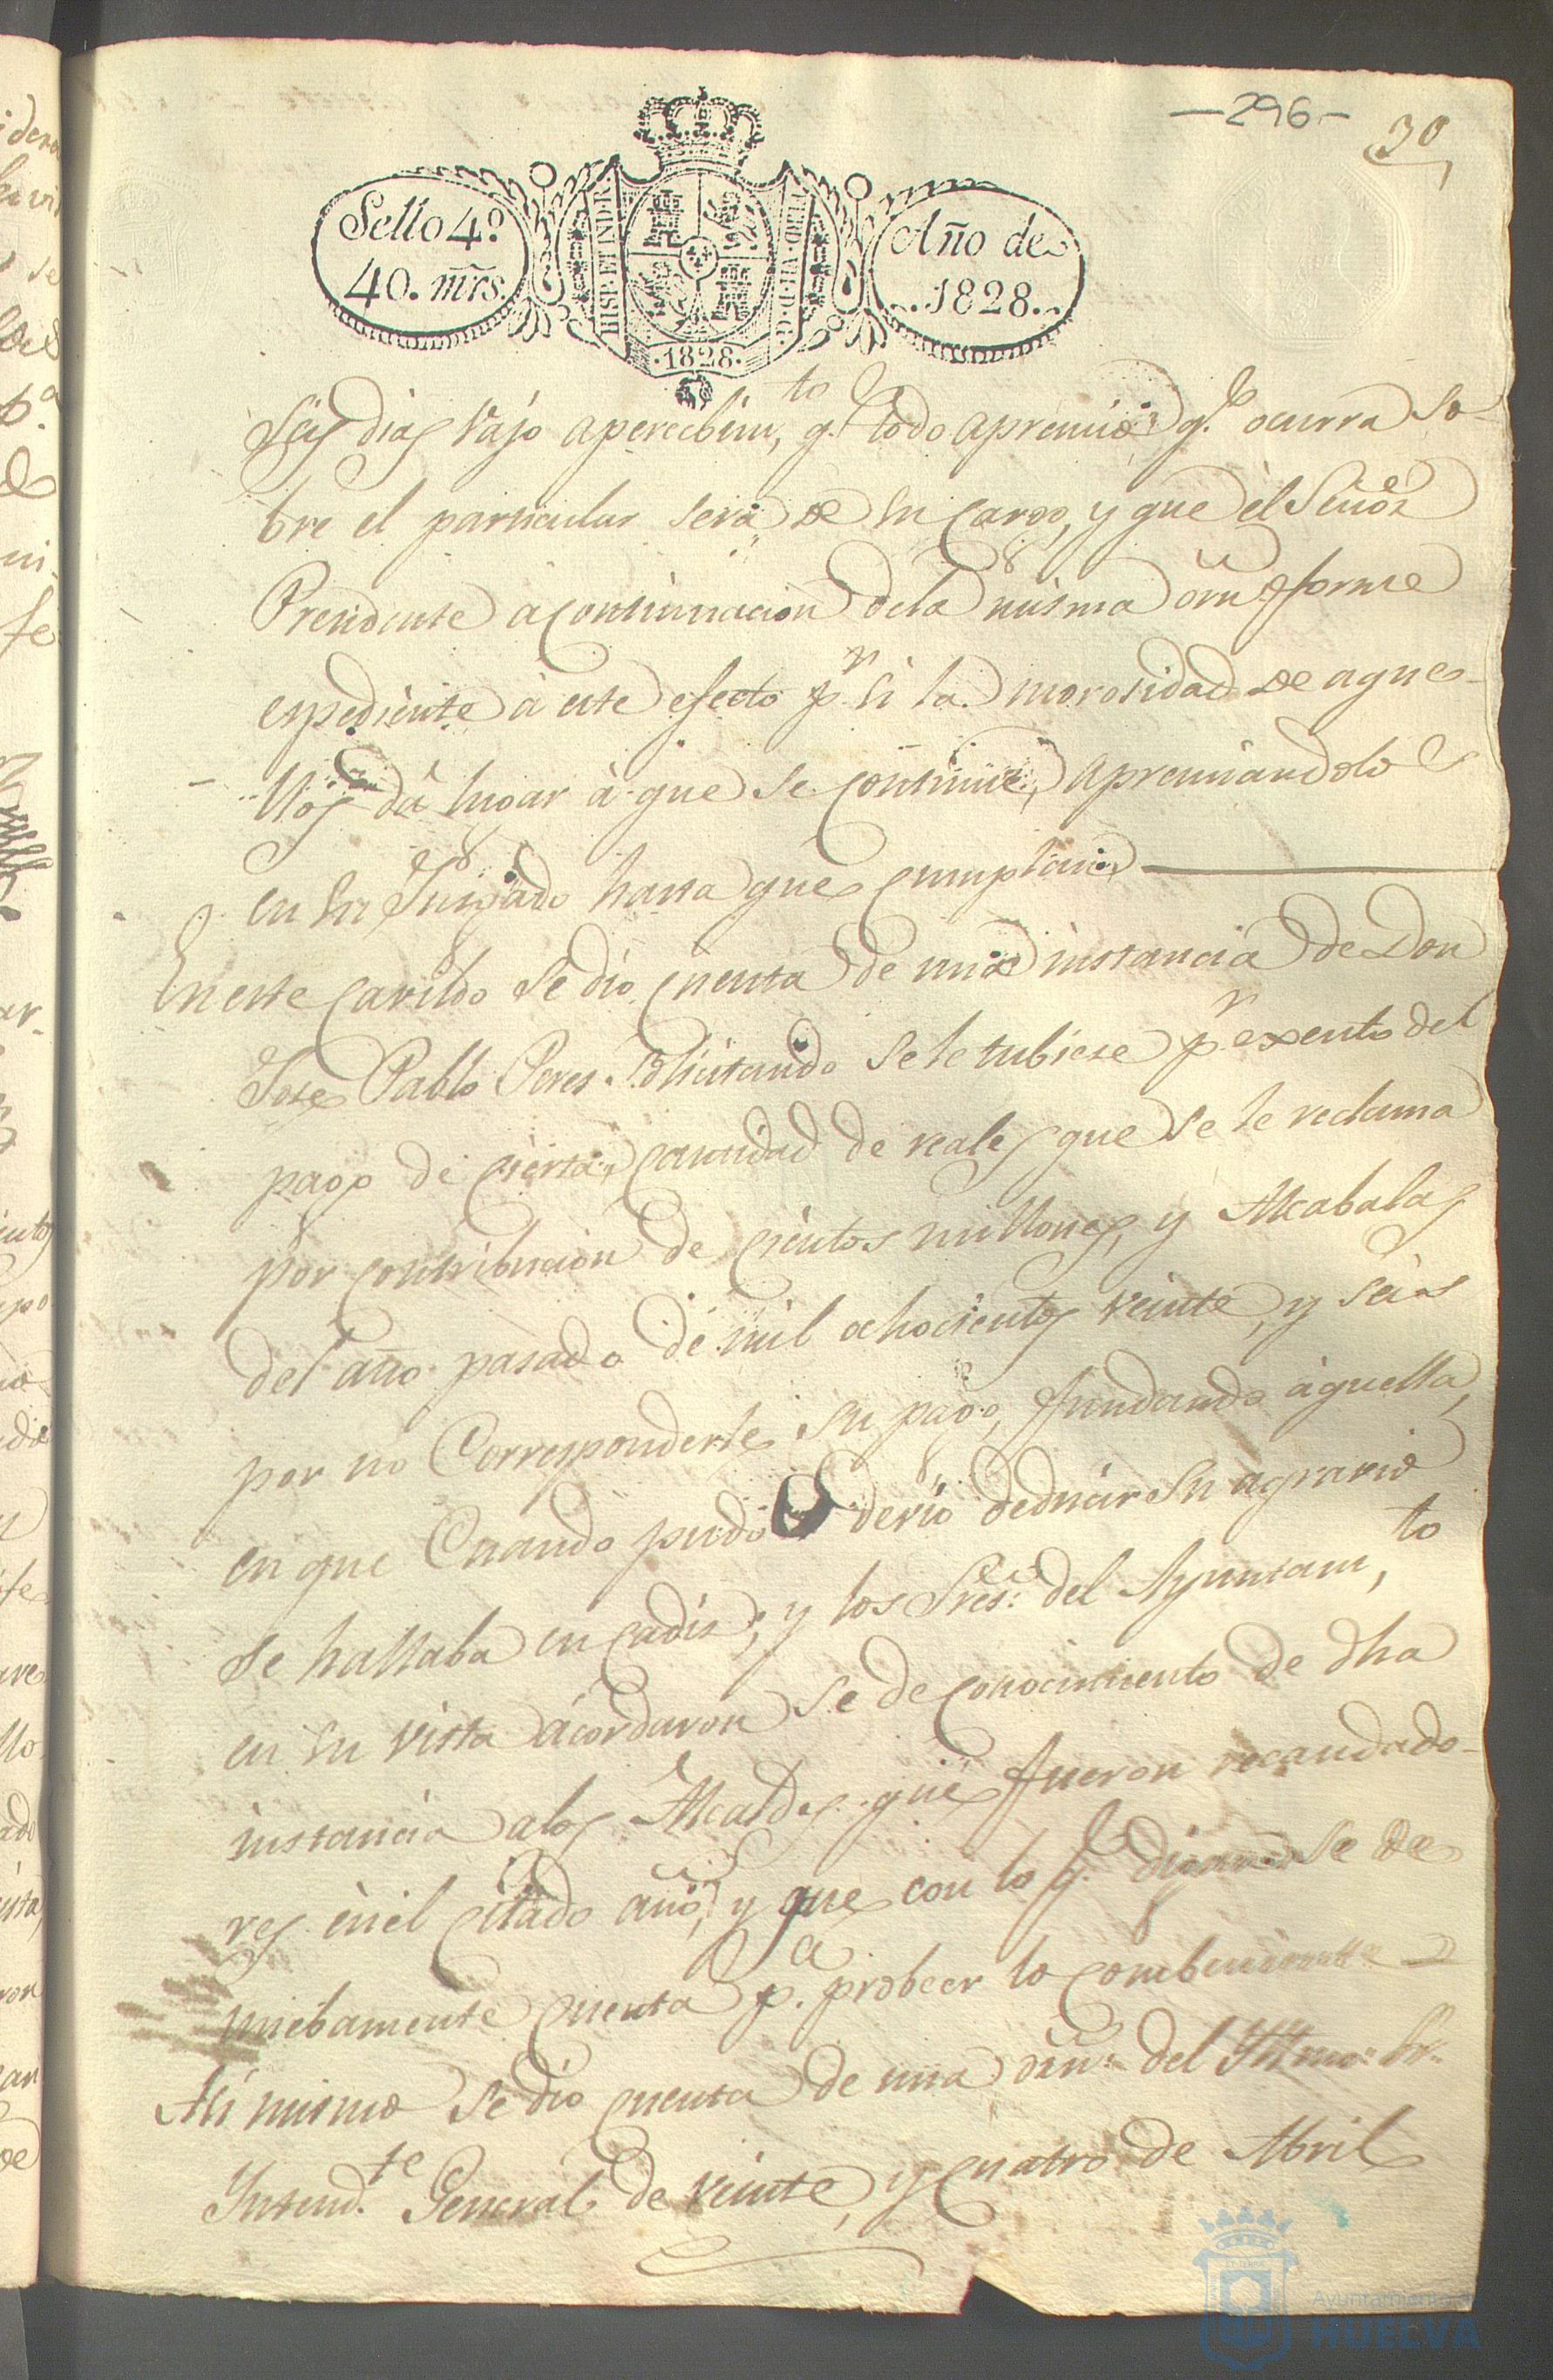 —296—
30
Sello 4º
40. mrs.
HISP. ET IND. R.
FERD. VII. D. G.
·1828·
Año de
1828.
Seis dias vajo apercebim,to q.e todo apremio q.e ocurra so-
bre el particular será de su cargo, y que el Señor
Precidente á continuacion dela misma orn forme
espediente á este efecto p.r si la morosidad de aque-
llos dá lugar á que se continue, apremiandolos
en su Jusgado hasta que cumplan
En este cavildo se dio cuenta de una instancia de Don
Jose Pablo Peres solicitando se le tubiese p.r exento del
pago de cierta cantidad de reales que se le reclama
por contribucion de cientos millones, y Alcabalas
del año pasado de mil ochocientos veinte, y seis
por no Corresponderle su pago, fundando aquella,
en que Cuando pudo y devio deducir su agravio
se hallaba en cadis, y los Sres. del Ayuntam,to
en su vista acordaron se de conocimiento de dha
instancia alos Alcaldes que fueron recaudado-
res en el citado año, y que con lo q.e digan se de
nuebamente cuenta p.a probeer lo combeniente
Asi mismo se dio cuenta de una orn. del Ytmo. Sr.
Yntend.te General de veinte, y cuatro de Abril
Ayuntamiento de
HUELVA